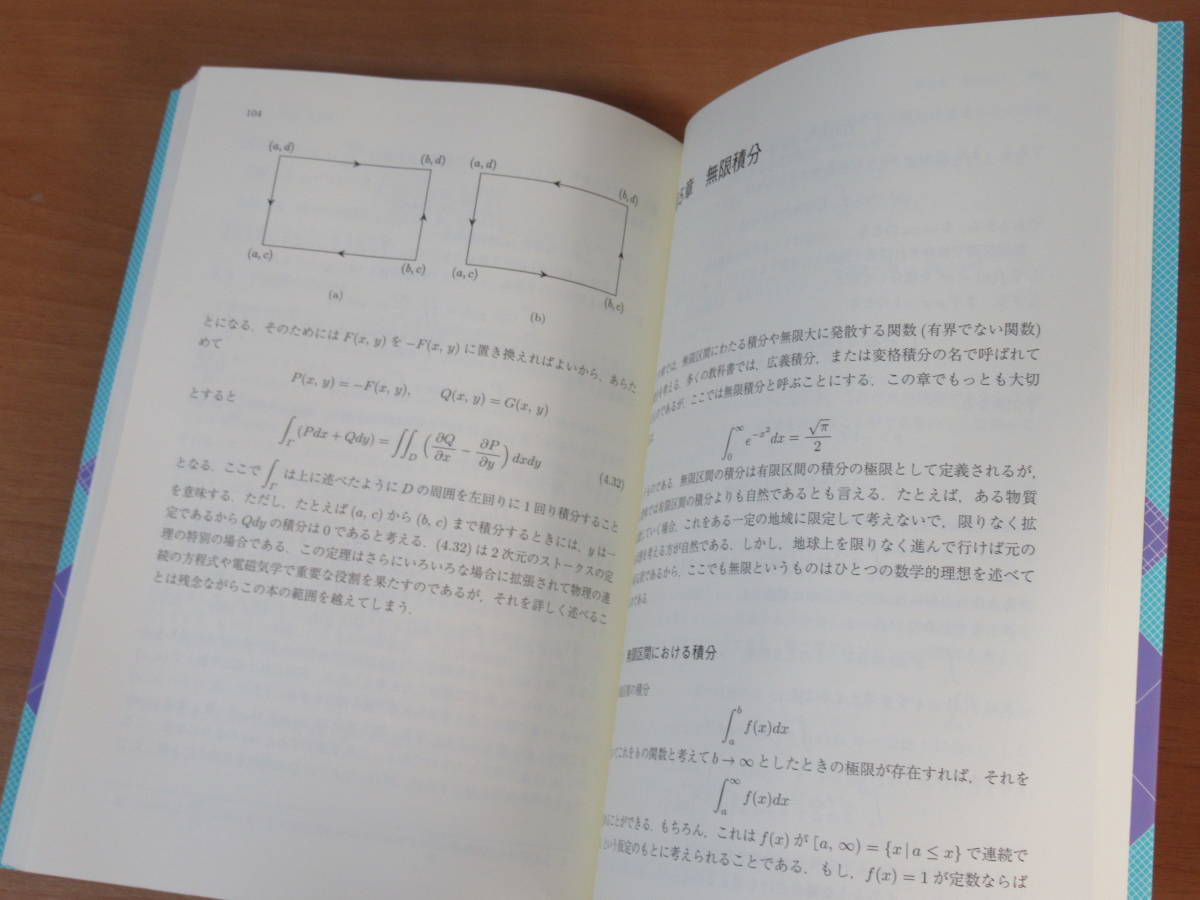 104
(a, d)
(b, d)
(a, c)
(b, c)
(a)
(a, d)
(b, d)
(a, c)
(b, c)
(b)
とになる．そのためには F(x, y) を −F(x, y) に置き換えればよいから，あらた
めて
P(x, y) = −F(x, y), Q(x, y) = G(x, y)
とすると
∫_Γ (Pdx + Qdy) = ∬_D (∂Q/∂x − ∂P/∂y) dxdy (4.32)
となる．ここで ∫_Γ は上に述べたように D の周囲を左回りに 1 回り積分すること
を意味する．ただし，たとえば (a, c) から (b, c) まで積分するときには，y は一
定であるから Qdy の積分は 0 であると考える．(4.32) は 2 次元のストークスの定
理の特別の場合である．この定理はさらにいろいろな場合に拡張されて物理の連
続の方程式や電磁気学で重要な役割を果たすのであるが，それを詳しく述べるこ
とは残念ながらこの本の範囲を越えてしまう．
5章 無限積分
では，無限区間にわたる積分や無限大に発散する関数 (有界でない関数)
を考える．多くの教科書では，広義積分，または変格積分の名で呼ばれて
のであるが，ここでは無限積分と呼ぶことにする．この章でもっとも大切
は
∫_0^∞ e^{−x²} dx = √π/2
ものである．無限区間の積分は有限区間の積分の極限として定義されるが，
では有限区間の積分よりも自然であるとも言える．たとえば，ある物質
していく場合，これをある一定の地域に限定して考えないで，限りなく拡
を考える方が自然である．しかし，地球上を限りなく進んで行けば元の
であるから，ここでも無限というものはひとつの数学的理想を述べて
である．
無限区間における積分
区間の積分
∫_a^b f(x)dx
これを b の関数と考えて b → ∞ としたときの極限が存在すれば，それを
∫_a^∞ f(x)dx
ことができる．もちろん，これは f(x) が [a, ∞) = {x | a ≤ x} で連続で
という仮定のもとに考えられることである．もし，f(x) = 1 が定数ならば